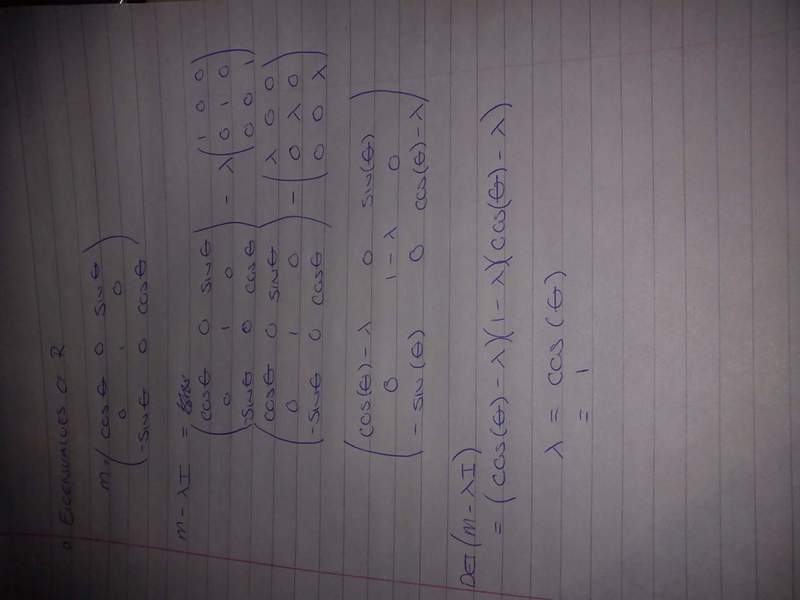 EIGENVALUES OF R
M = ( cosθ 0 sinθ
0 1 0
-sinθ 0 cosθ )
M - λI =
( cosθ 0 sinθ ) - λ ( 1 0 0
0 1 0 0 1 0
-sinθ 0 cosθ 0 0 1 )
( cosθ 0 sinθ ) - ( λ 0 0
0 1 0 0 λ 0
-sinθ 0 cosθ 0 0 λ )
( cos(θ) - λ 0 sin(θ)
0 1 - λ 0
- sin(θ) 0 cos(θ) - λ )
DET(M - λI)
= (cos(θ) - λ)(1 - λ)(cos(θ) - λ)
λ = cos(θ)
= 1